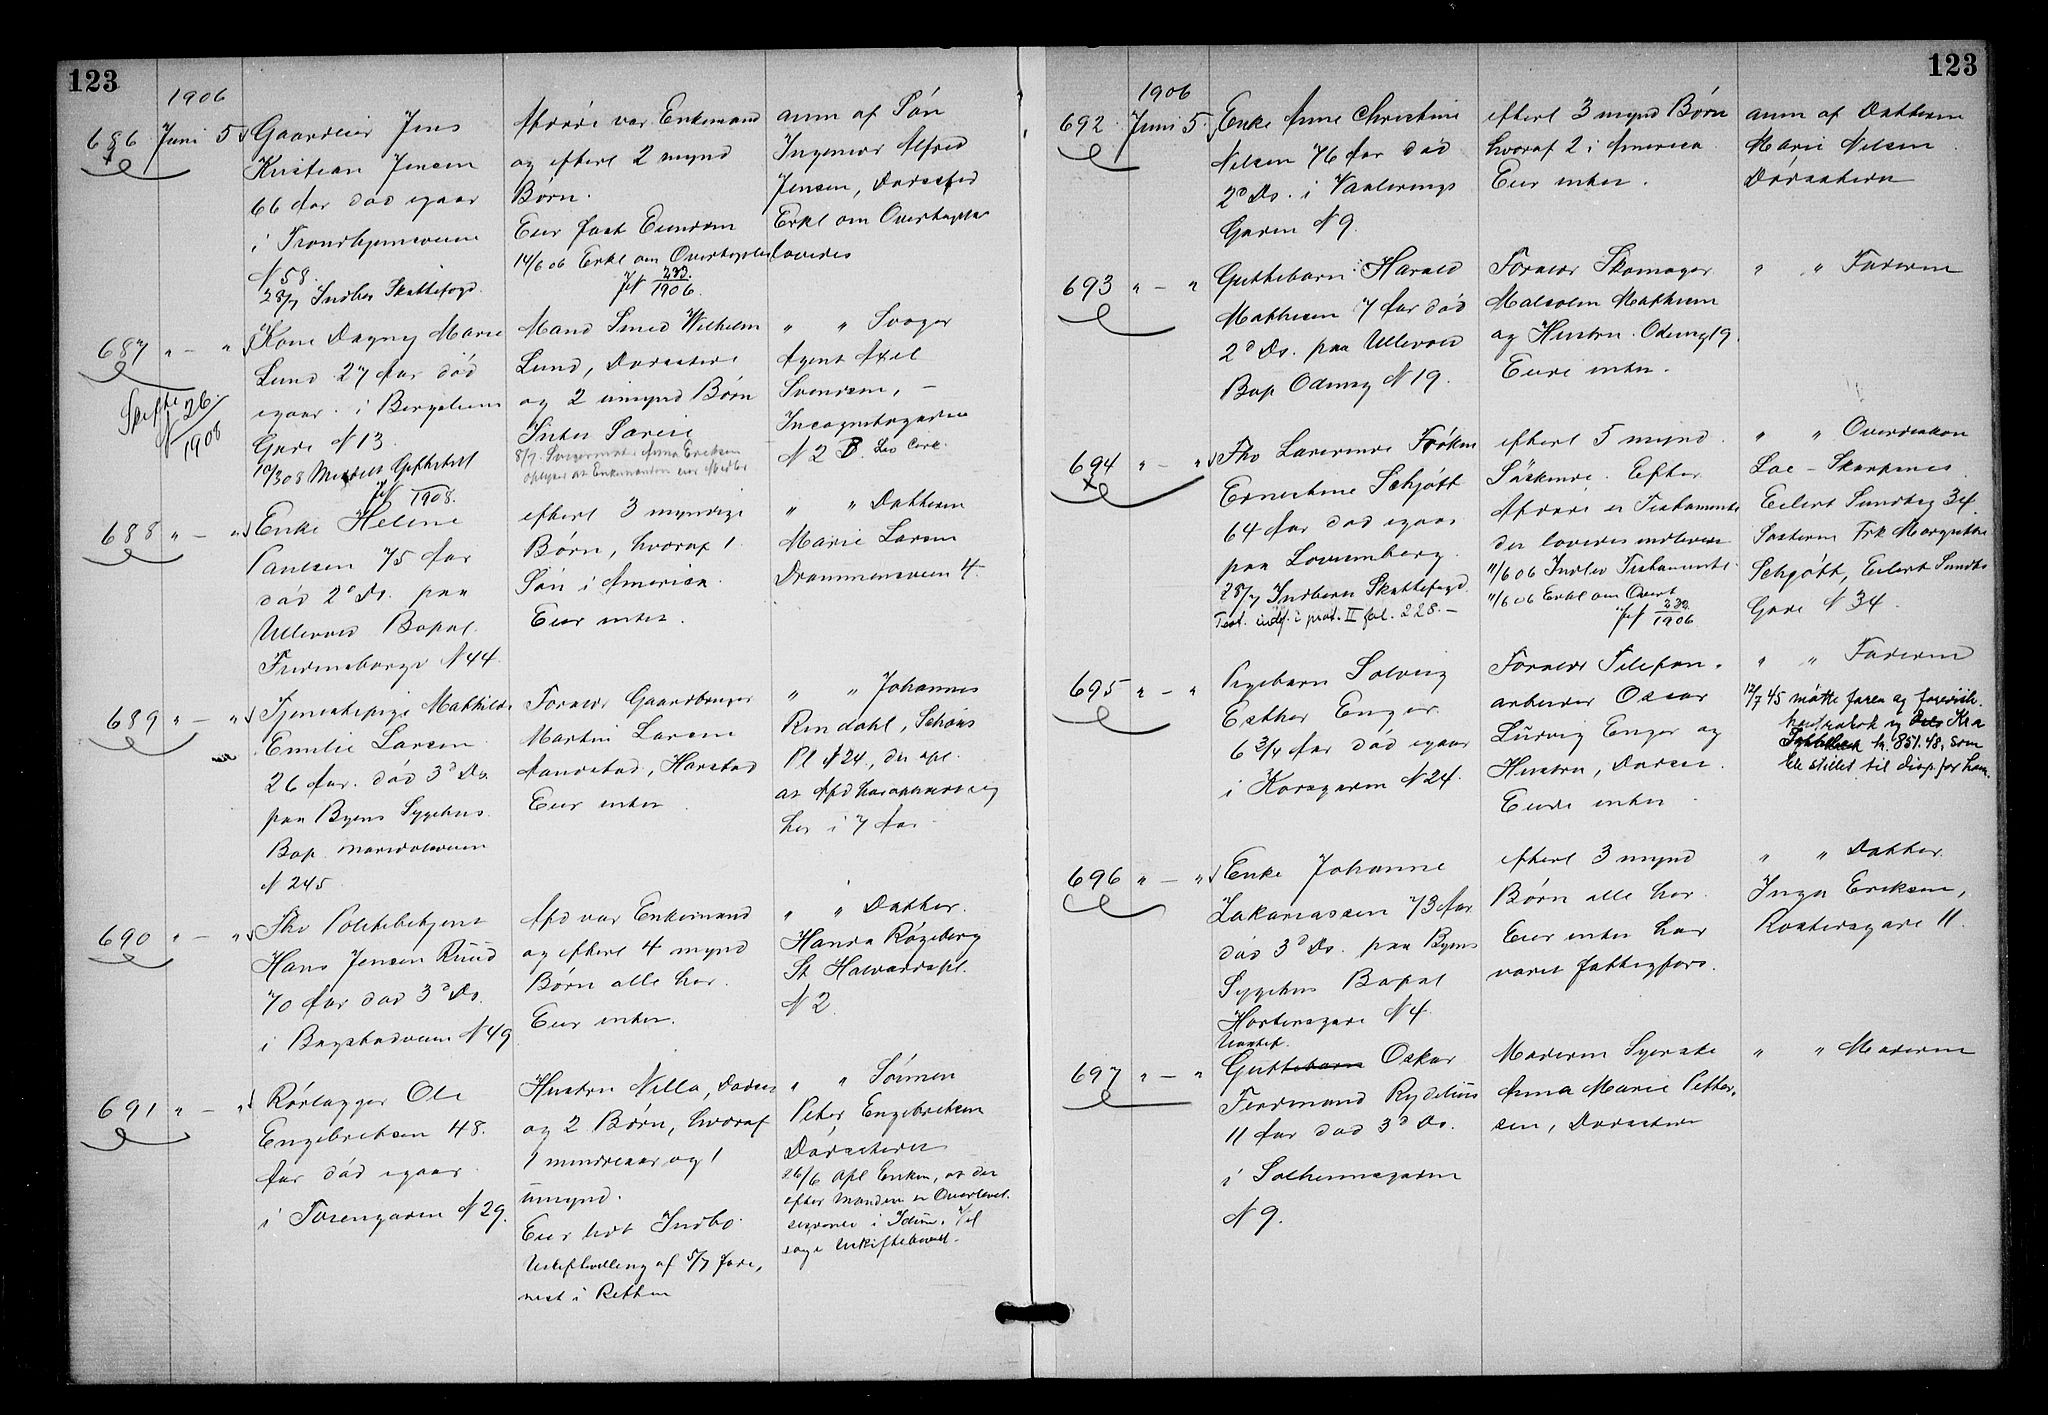 123
1906
686 Juni 5
Gaardeier Jens
Kristian Jensen
66 Aar død igaar
i Trondhjemsveien
N 58.
28/7 Indber Skattefogd.
Afdøde var Enkemand
og efterl 2 mynd
Børn.
Eier fast Eiendom
14/6 06 Erkl om Overtagelse
Jf 233/1906.
anm af Søn
Ingeniør Alfred
Jensen, Dødssted
Erkl om Overtagelse
lovedes
687 " — "
Skifte N 26/1908
Kone Dagny Marie
Lund 27 Aar død
igaar i Bergsliens
Gade N 13.
Jf 1908.
Mand Smed Wilhelm
Lund, Dødsstedet
og 2 umynd Børn
8/7. Svigermoder Anna Eriksen
oplyser at Enkemanden eier Midler
" " Svoger
Agent Axel
Svendsen, —
Incognitogaden
N 2 B.
688 " — "
Enke Helene
Paulsen 75 Aar
død 2d Ds. paa
Ullevold Bopæl
Fredensborgv N 44.
efterl 3 myndige
Børn, hvoraf 1
Søn i Amerika.
Eier intet.
" " Datteren
Marie Larsen
Drammensveien 4.
689 " — "
Tjenestepige Mathilde
Emilie Larsen
26 Aar. død 3d Ds.
paa Byens Sygehus
Bop. Maridalsveien
N 245
Forældre Gaardbruger
Martin Larsen
Sandstad, Harstad
Eier intet
" " Johannes
Rendahl, Schous
Pl N 24, der opl.
at Afd har opholdt sig
her i 7 Aar
690 " — "
Fhv Politibetjent
Hans Jensen Ruud
70 Aar død 3d Ds.
i Bogstadveien N 49
Afd var Enkemand
og efterl 4 mynd
Børn alle her.
Eier intet.
" " Datter.
Handa Rozeberg
St Halvardspl.
N 2
691 " — "
Rørlægger Ole
Engebretsen 48.
Aar død igaar
i Tøiengaden N 29.
Hustru Nilla, Dødsst
og 2 Børn, hvoraf
1 mindreaar og 1
umynd.
Eier lidt Indbo.
Uskiftbevilling af 5/7 fore,
vist i Retten
" " Sønnen
Peter Engebretsen
Dødsstedet
26/6 opl Enken, at der
efter Manden er Overlevel.
søge Uskiftebevill.
123
1906
692 Juni 5.
Enke Anne Christine
Nilsen 76 Aar død
2d Ds. i Vaalerengs
Gaden N 9.
efterl 3 mynd Børn
hvoraf 2 i America
Eier intet.
anm af Datteren
Marie Nilsen
Dødsstedet
693 " — "
Guttebarn Harald
Mathisen 7 Aar død
2d Ds. paa Ullevold
Bop Odinsg N 19.
Forældr Skomager
Malcolm Mathisen
og Hustru. Odinsg 19.
Eiede intet.
" " Faderen
694 " — "
Fhv Lærerinde Frøken
Ernestine Schjøtt
64 Aar død igaar
paa Lovisenberg
28/7 Indberr Skattefogd
Test. indf. i prot. II fol. 228. —
efterl 5 mynd
Søskende. Efter
Afdøde er Testamente
der lovedes indleveret
11/6 06 Indlev Testamente
11/6 06 Erkl om Overt
Jf 232/1906
" " Overdiakon
Loe-Skarpenes
Eilert Sundtsg 34.
Søsteren Frk Margrethe
Schjøtt, Eilert Sundts
Gade N 34.
695 " — "
Pigebarn Solveig
Esther Enger
6 3/4 Aar død igaar
i Korsgaden N 24.
Forældre Telefon-
arbeider Oscar
Ludvig Enger og
Hustru, Dødsst.
Eiede intet
" " Faderen
12/7 45 møtte faren og foreviste
ble stillet til disp. for ham.
696 " — "
Enke Johanne
Zakariassen 73 Aar
død 3d Ds. paa Byens
Sygehus Bopæl
Hortensgade N 4.
efterl 3 mynd
Børn alle her
Eier intet har
været fattigfors.
" " Datter.
Inga Eriksen,
Rostedsgade 11.
697 " — "
Uægtef.
Guttebarn Oskar
Ferdinand Rydelius
11 Aar død 3d Ds.
i Solhennsgaden
N 9.
Moderen Syerske
Anna Marie Petter-
sen, Dødsstedet
" " Moderen